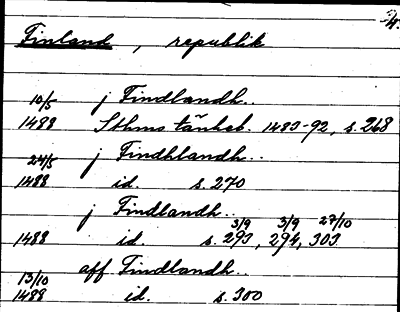 Finland, republik
10/5 j Findlandh..
1488 Sthms tänkeb. 1483-92, s. 268
24/5 j Findhlandh..
1488 id. s. 270
j Findlandh..
3/9 3/9 27/10
1488 id. s. 293, 294, 303
13/10 aff Findlandh..
1488 id. s. 300